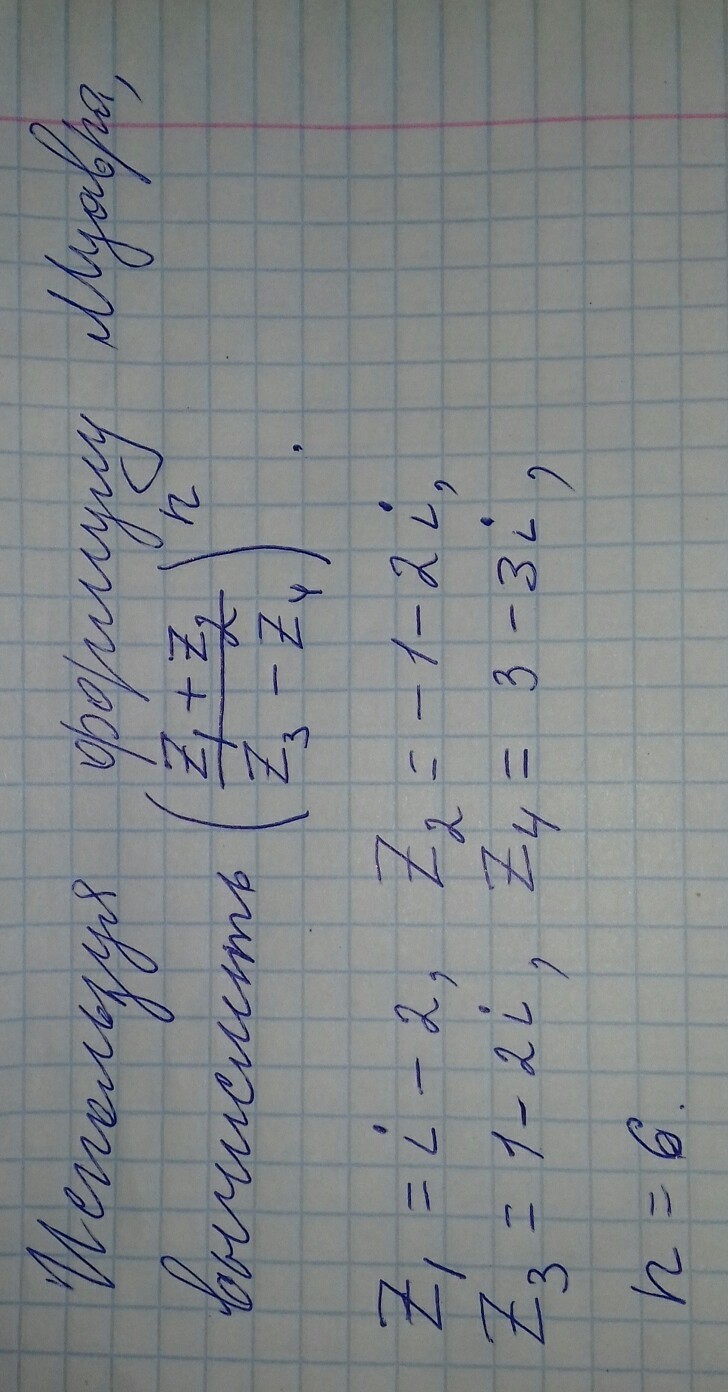 Используя формулу Муавра,
вычислить ((Z₁ + Z₂)/(Z₃ - Z₄))ⁿ.
Z₁ = i - 2, Z₂ = -1 - 2i,
Z₃ = 1 - 2i, Z₄ = 3 - 3i,
n = 6.